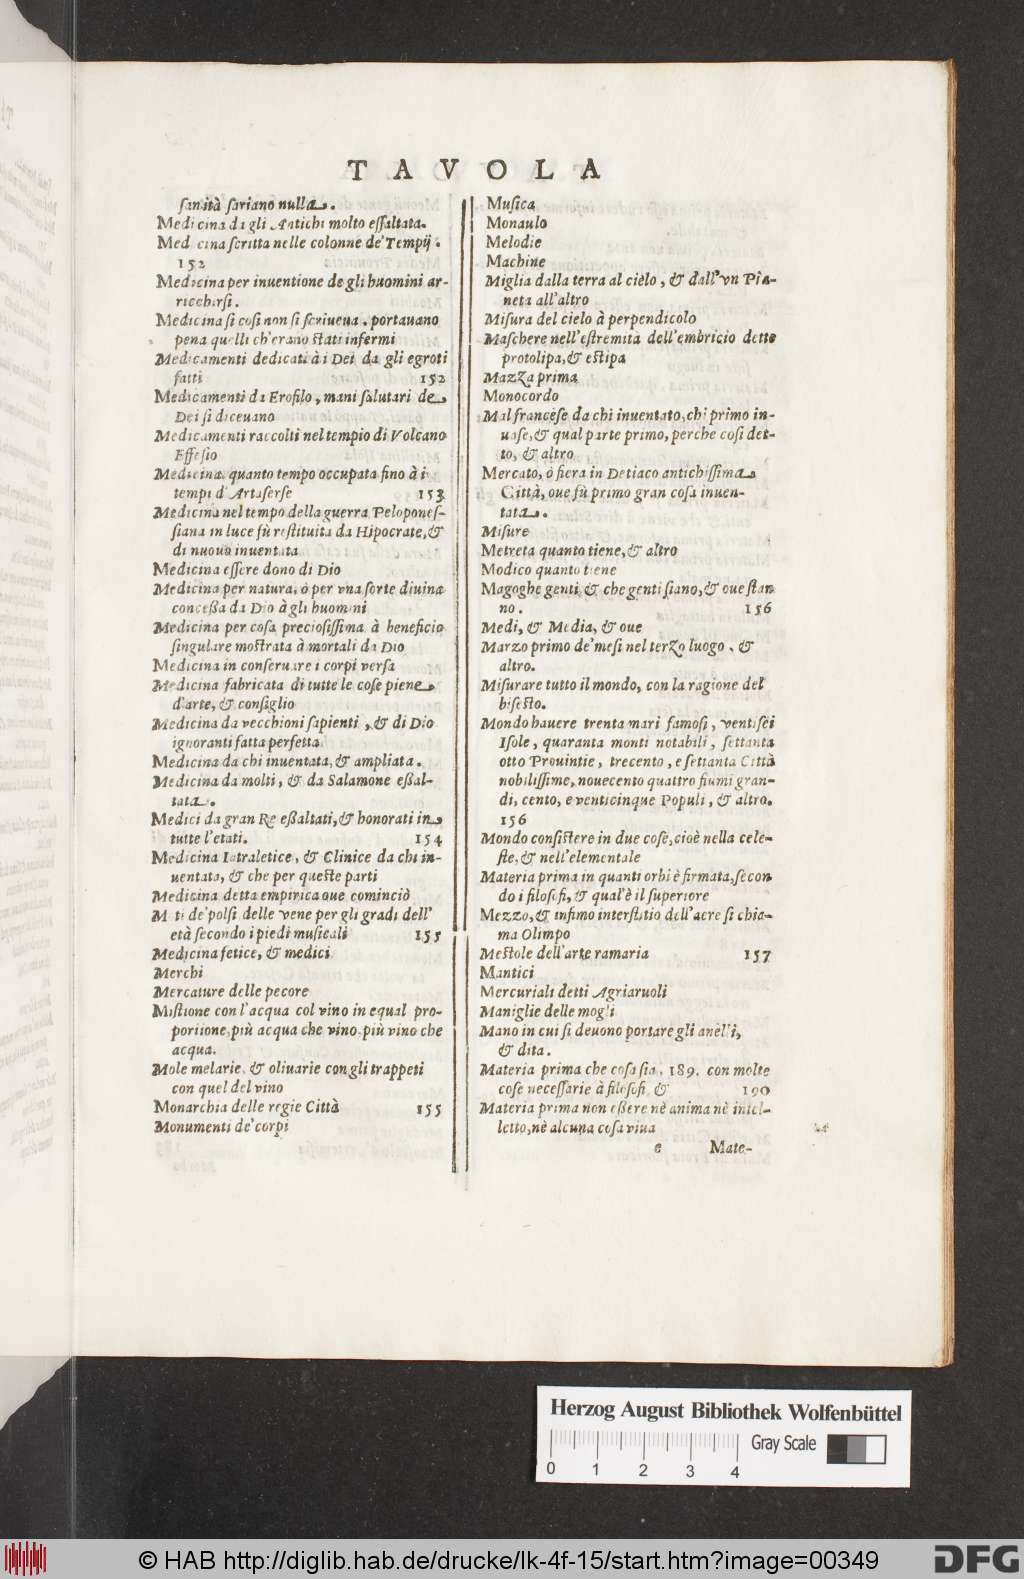 TAVOLA
sanità sariano nulla.
Medicina da gli Antichi molto essaltata.
Medicina scritta nelle colonne de' Tempij.
152
Medicina per inuentione de gli huomini ar-
ricchirsi.
Medicina si così non si scriueua, portauano
pena quelli ch'erano stati infermi
Medicamenti dedicati à i Dei da gli egroti
fatti 152
Medicamenti da Erofilo, mani salutari de
Dei si diceuano
Medicamenti raccolti nel tempio di Volcano
Effesio
Medicina, quanto tempo occupata fino à i
tempi d'Artaserse 153
Medicina nel tempo della guerra Pelopones-
siana in luce fù restituita da Hipocrate, &
di nuouo inuentata
Medicina essere dono di Dio
Medicina per natura, ò per vna sorte diuina
concessa da Dio à gli huomini
Medicina per cosa preciosissima à beneficio
singulare mostrata à mortali da Dio
Medicina in conseruare i corpi versa
Medicina fabricata di tutte le cose piene
d'arte, & consiglio
Medicina da vecchioni sapienti, & di Dio
ignoranti fatta perfetta
Medicina da chi inuentata, & ampliata.
Medicina da molti, & da Salamone essal-
tata.
Medici da gran Re essaltati, & honorati in
tutte l'etati. 154
Medicina Iatraletice, & Clinice da chi in-
uentata, & che per queste parti
Medicina detta empirica oue cominciò
Moti de' polsi delle vene per gli gradi dell'
età secondo i piedi musicali 155
Medicina fetice, & medici
Merchi
Mercature delle pecore
Mistione con l'acqua col vino in equal pro-
portione, più acqua che vino, più vino che
acqua.
Mole melarie, & oliuarie con gli trappeti
con quel del vino
Monarchia delle regie Città 155
Monumenti de' corpi
Musica
Monaulo
Melodie
Machine
Miglia dalla terra al cielo, & dall'vn Pia-
neta all'altro
Misura del cielo à perpendicolo
Maschere nell'estremità dell'embricio dette
protolipa, & estipa
Mazza prima
Monocordo
Mal francese da chi inuentato, chi primo in-
uase, & qual parte primo, perche così det-
to, & altro
Mercato, ò fiera in Detiaco antichissima
Città, oue fù primo gran cosa inuen-
tata.
Misure
Metreta quanto tiene, & altro
Modico quanto tiene
Magoghe genti, & che genti siano, & oue stan
no. 156
Medi, & Media, & oue
Marzo primo de' mesi nel terzo luogo, &
altro.
Misurare tutto il mondo, con la ragione del
bisesto.
Mondo hauere trenta mari famosi, ventisei
Isole, quaranta monti notabili, settanta
otto Prouintie, trecento, e settanta Città
nobilissime, nouecento quattro fiumi gran-
di, cento, e venticinque Populi, & altro.
156
Mondo consistere in due cose, cioè nella cele-
ste, & nell'elementale
Materia prima in quanti orbi è firmata, secon
do i filosofi, & qual'è il superiore
Mezzo, & infimo interstitio dell'aere si chia-
ma Olimpo
Mestole dell'arte ramaria 157
Mantici
Mercuriali detti Agriaruoli
Maniglie delle mogli
Mano in cui si deuono portare gli anelli,
& dita.
Materia prima che cosa sia, 189. con molte
cose necessarie à filosofi, & 190
Materia prima non essere nè anima nè intel-
letto, nè alcuna cosa viua
e Mate-
Herzog August Bibliothek Wolfenbüttel
Gray Scale
0 1 2 3 4
© HAB http://diglib.hab.de/drucke/lk-4f-15/start.htm?image=00349
DFG